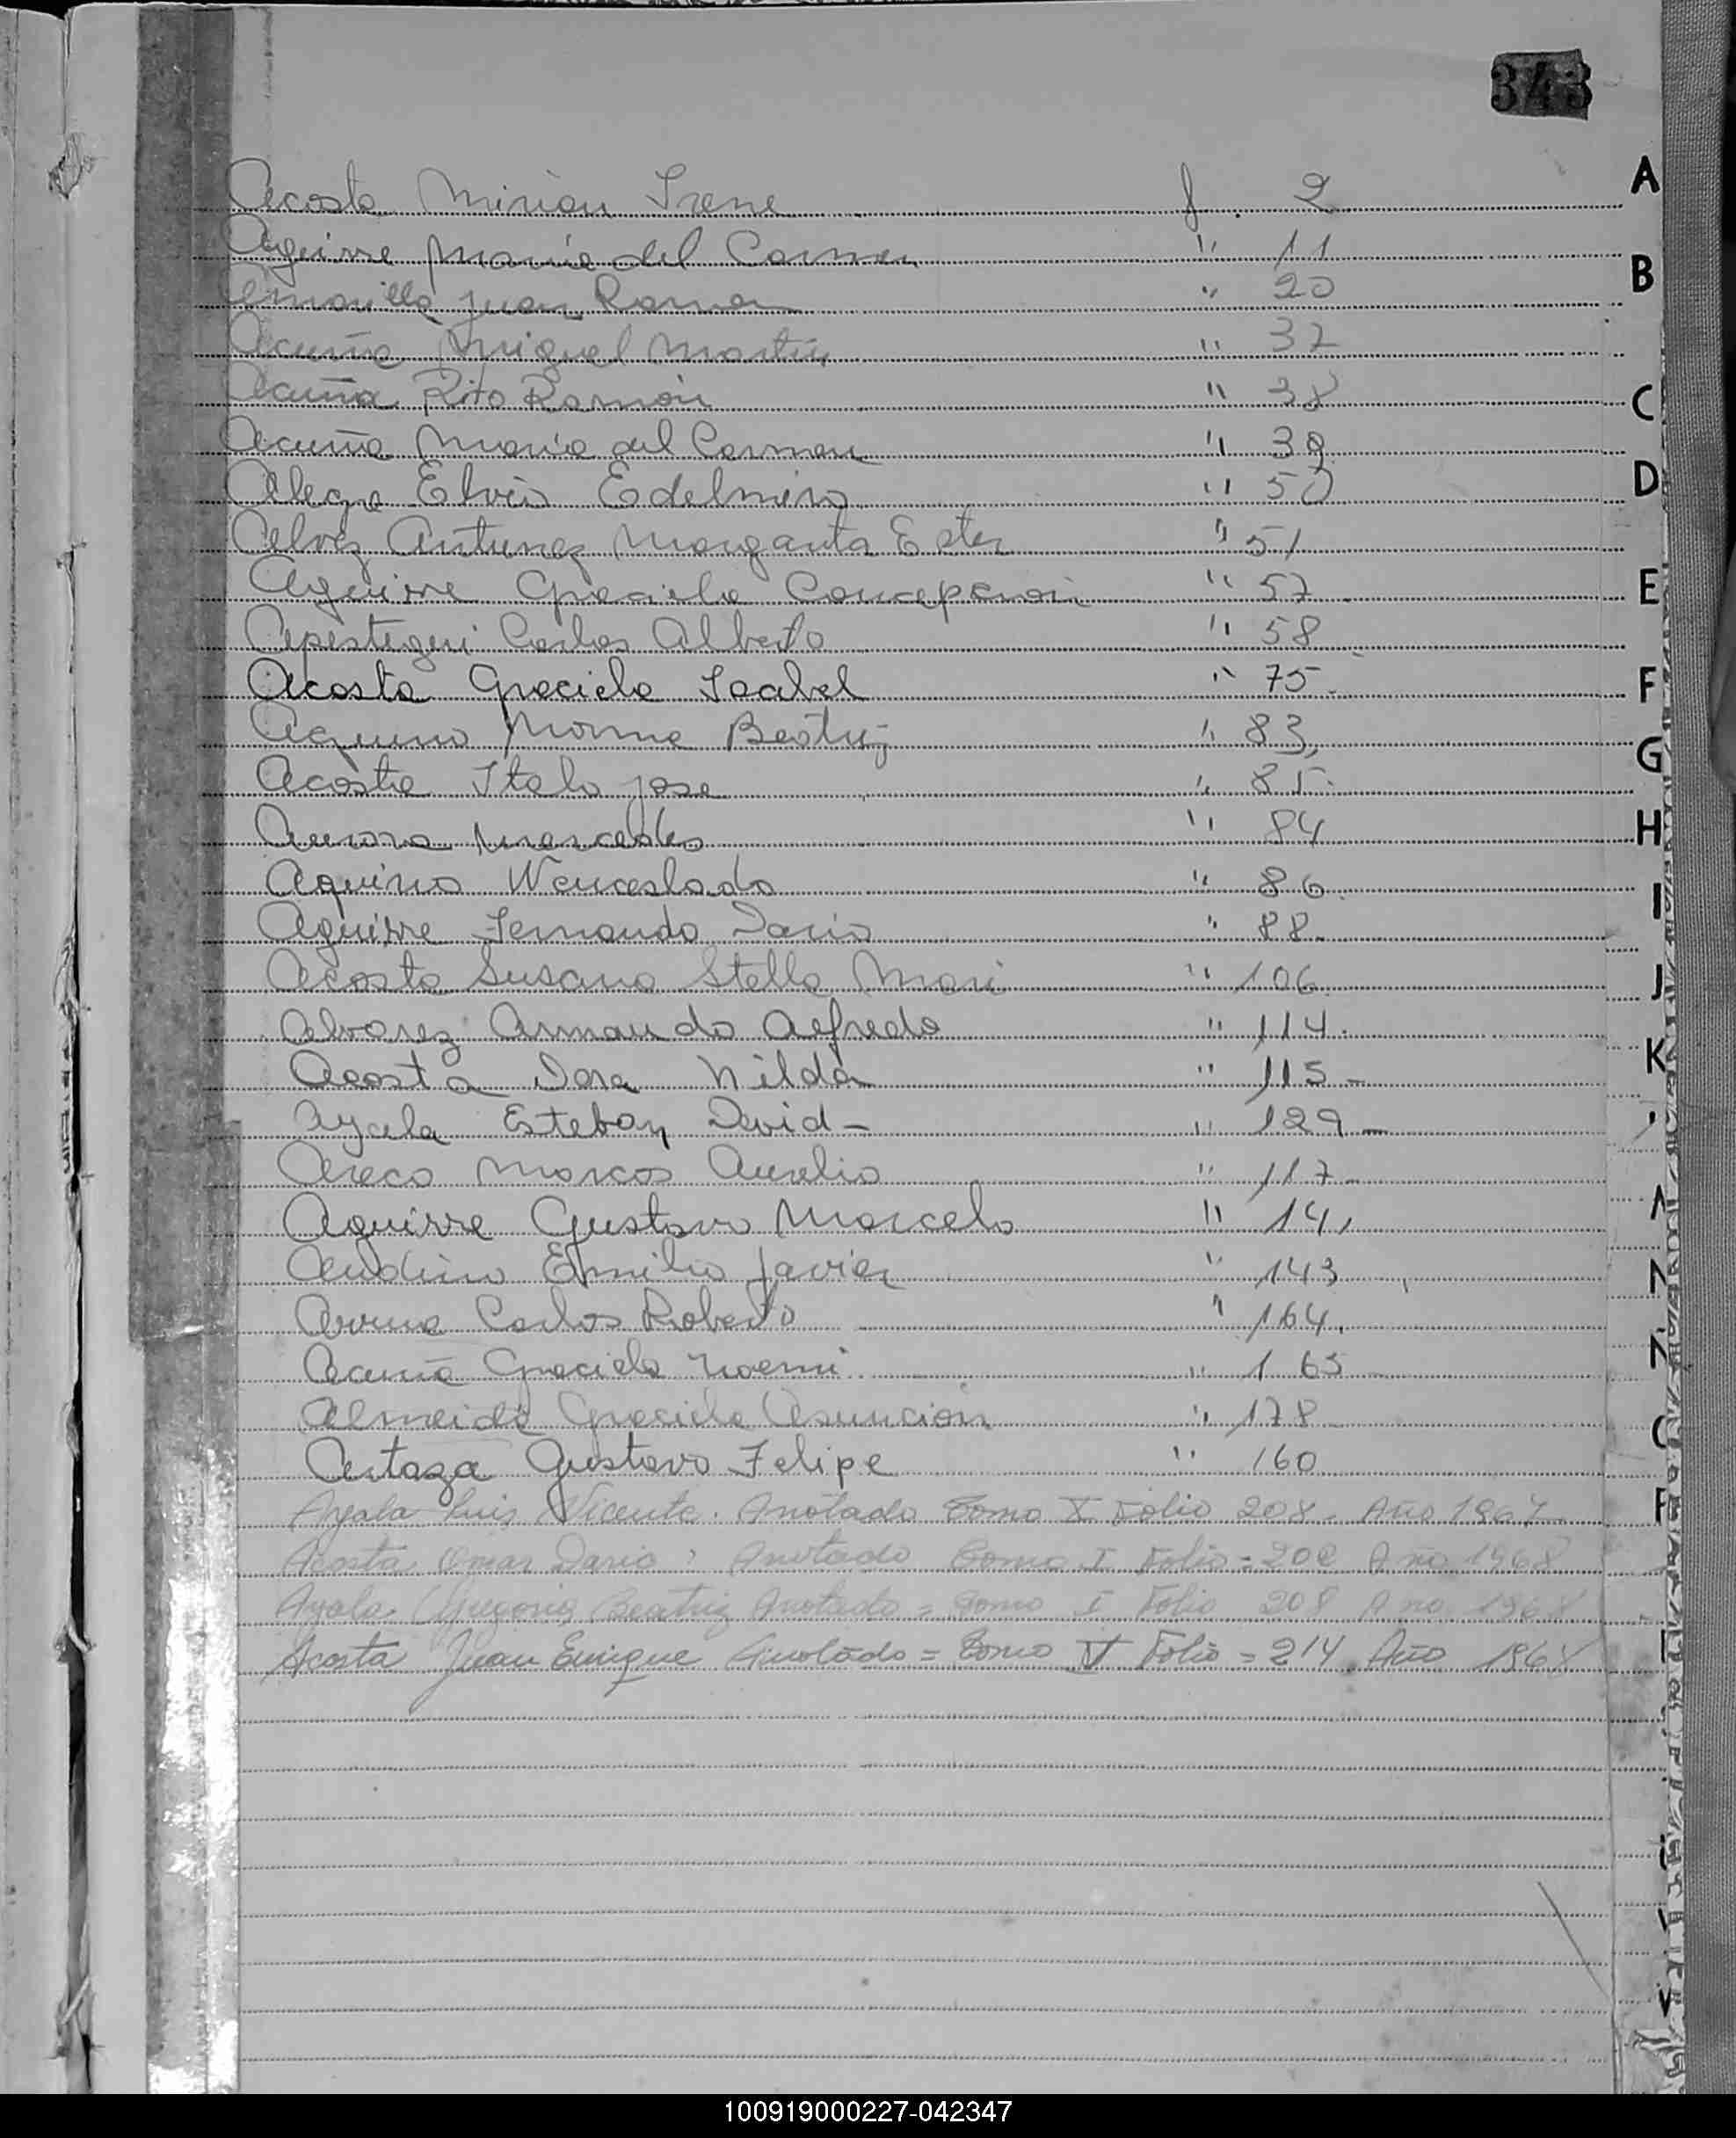 343
Acosta Mirian Irene f. 2
Aguirre Maria del Carmen " 11
Amarilla Juan Ramon " 20
Acuña Miguel Martin " 37
Acuña Rito Ramón " 38
Acuña Maria del Carmen " 39
Alegre Elvio Edelmiro " 50
Alvez Antunez Margarita Ester " 51
Aguirre Graciela Concepcion " 57
Apestegui Carlos Alberto " 58
Acosta Graciela Isabel " 75
Aquino Norma Beatriz " 83
Acosta Italo Jose " 85
Mercedes " 84
Aquino Wenceslado " 86
Aguirre Fernando Dario " 88
Acosta Susana Stella Mari " 106
Alvarez Armando Alfredo " 114
Acosta Dora Nilda " 115 -
Ayala Esteban David - " 129 -
Areco Marcos Aurelio " 117
Aguirre Gustavo Marcelo " 141
Emilio Javier " 143
Carlos Roberto " 164
Acuña Graciela Noemi " 165
Almeida Graciela Asuncion " 178
Artaza Gustavo Felipe " 160
Ayala Luis Vicente. Anotado Tomo X Folio 208. Año 1967
Acosta Omar Dario, Anotado Tomo I Folio = 208 Año 1968
Ayala Gregoria Beatriz Anotado = Tomo I Folio 208 Año 1968
Acosta Juan Enrique Anotado = Tomo IV Folio = 214 Año 1968
A
B
C
D
E
F
G
H
I
J
K
100919000227-042347